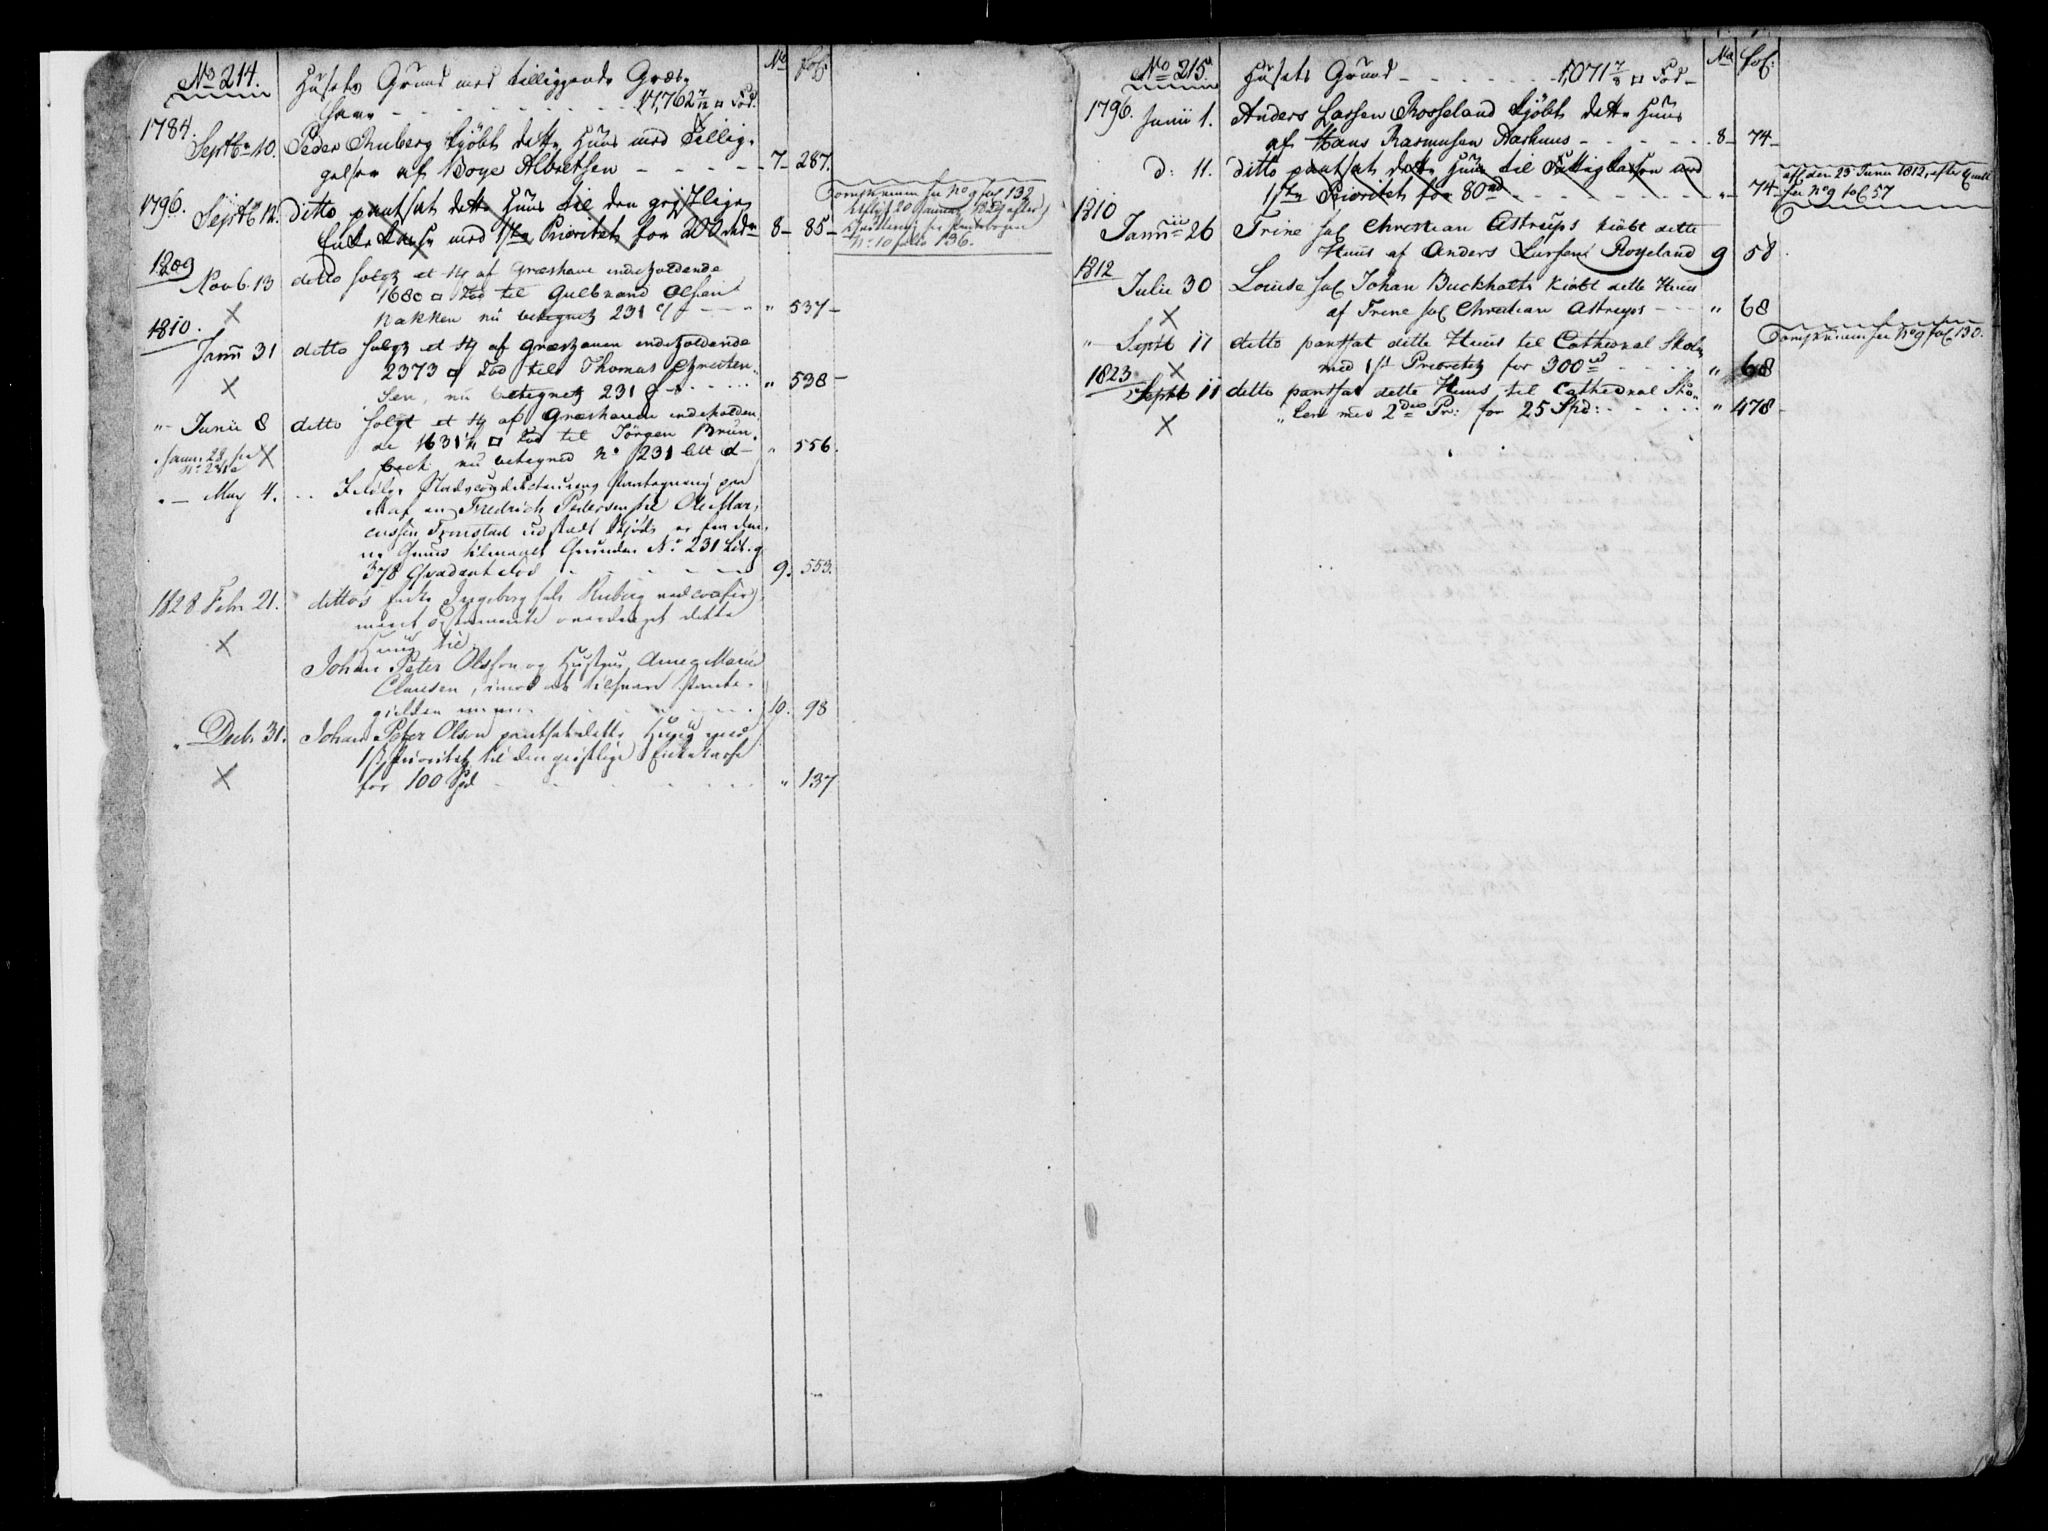 No 214.
Husets Grund med tilliggende Græs-
have - - - 11,762 7/12 □ Fod.
No
fol:
1784.
Septbr 10. Peder Ruberg kjöbt dette Huus med Tillig-
gelser af Boye Albretsen - - - 7 - 287.
1796. Septbr 12. ditto pantsat dette Huus til den geistlige
Enke Casse med 1ste Prioritet for 200 rdr 8 - 85 -
fol 132
20 Januar 1829 efter
Pantebogen
No 10 folio 136.
1809
Novb. 13 ditto solgt et st af Græshave indeholdende
1680 □ Fod til Gulbrand Olsen
Nakken nu betegnet 231 - - " 537 -
1810.
Janu 31 ditto solgt et st af Græshaven indeholdende
2373 □ Fod til Thomas Christen-
sen, nu betegnet 231 - - " 538 -
"- Junii 8 ditto solgt et st af Græshaven indeholden-
de 1631 1/2 □ Fod til Jörgen Brun-
beck nu betegned No 231 litt d - " 556.
"- May 4. pantegning paa
Fredrich Pedersen til Ole Mar-
cussen Tronstad udstædt Skjöde er fra den-
ne Grund Grunden No 231 Lit. g
378 Qvadrat Fod - - - 9. 553.
1828 Febr 21. ditto's Enke Ingeborg sal Ruberg ved confir-
meret Testamente overdraget dette
Huus til
Johan Peter Olsson og Hustrue Anne Marie
Clausen, imod at tilsvare Pante-
gielden - - - 10. 98
" Decbr 31. Johan Peter Olson pantsat dette Huus med
1ste Prioritet til den geistlige Enkekasse
for 100 Spd - - - " 137
No 215.
Husets Grund - - - 1,071 7/8 □ Fod -
No
fol:
1796. Junii 1. Anders Larsen Rosseland kjöbt dette Huus
af Hans Rasmusen Aarhuus - - - 8 - 74 -
d: 11. ditto pantsat dette Huus til Fattigkassen med
1ste Prioritet for 80 rd - - - " - 74 -
afl den 25 Junii 1812, efter Qvitt
see No 9 fol 57
1810
Janrii 26 Trine sal Christian Astrups kiöbt dette
Huus af Anders Larsen Rosseland 9 58
1812
Julii 30 Louise sal Johan Buckholts kiöbt dette Huus
af Trine sal Christian Astrups - - " 68
"- Septb 11 ditto pantsat dette Huus til Cathedral Skolen
med 1st Prioritet for 300 rd - - - " 68
No 9 fol 130.
1823
Septb 11 ditto pantsat dette Huus til Cathedral Sko-
len med 2den Pr: for 25 Spd: - - - " 478 -